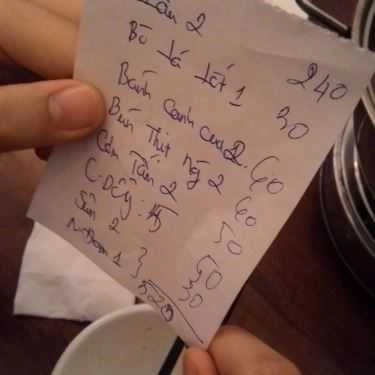 Lẩu 2 240
Bò lá lốt 1 30
Bánh canh cua 2 60
Bún Thịt ng 2 60
Cơm Tấm 2 50
C. Dừa: 5 50
Sâm 2 } 30
1
520